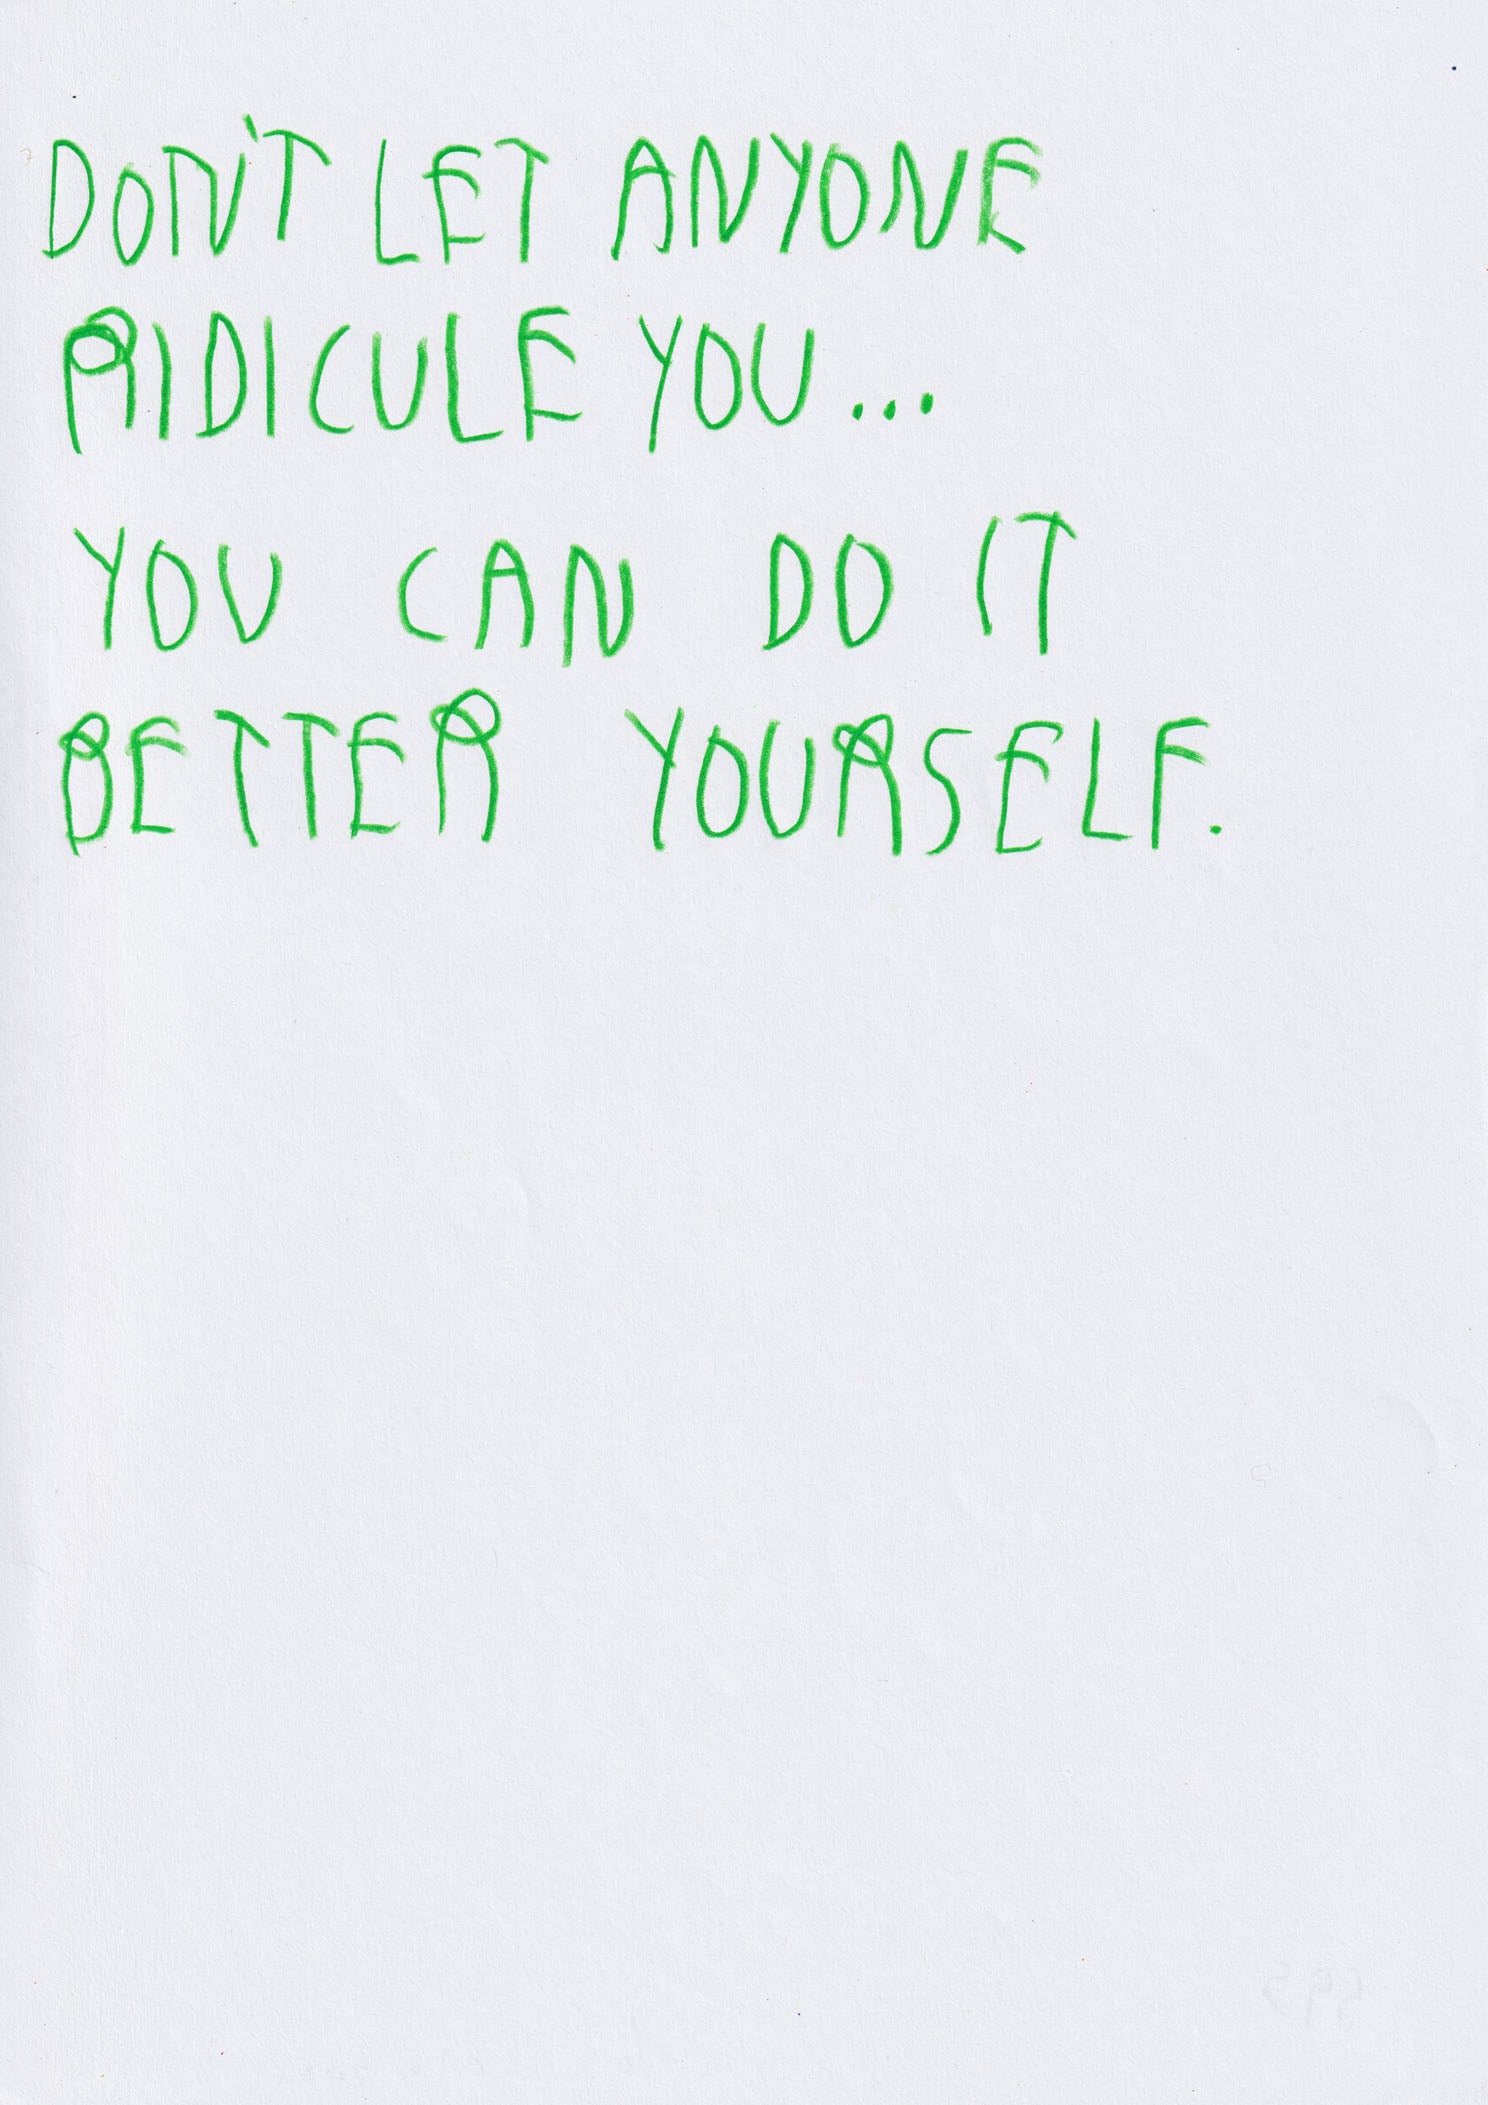 DON'T LET ANYONE
RIDICULE YOU...
YOU CAN DO IT
BETTER YOURSELF.